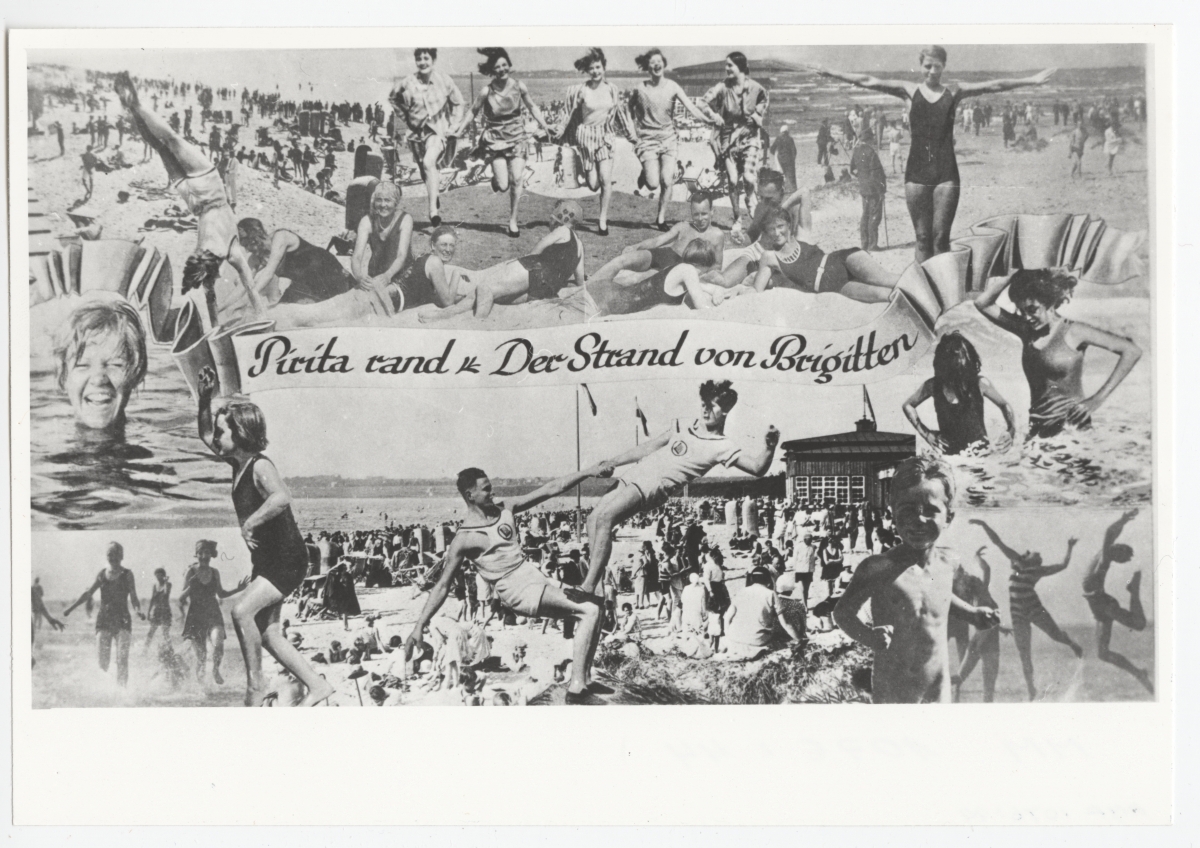 Pirita rand Der Strand von Brigitten